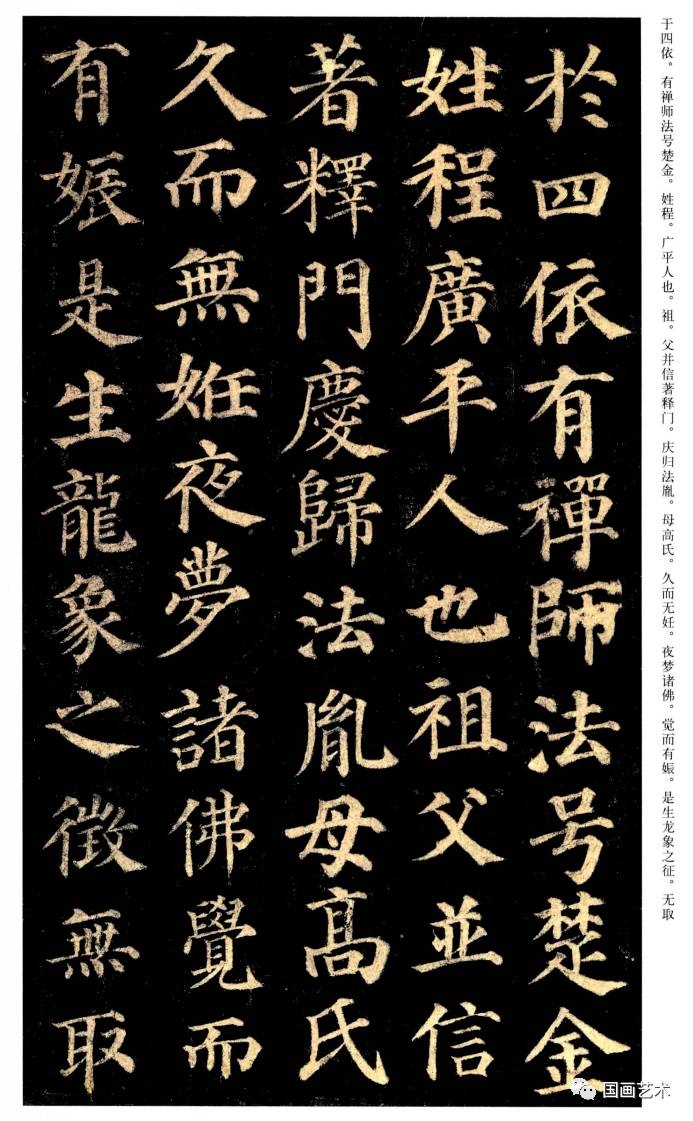 于四依。有禅师法号楚金。姓程。广平人也。祖。父并信著释门。庆归法胤。母高氏。久而无妊。夜梦诸佛。觉而有娠。是生龙象之征。无取
於四依有禪師法号楚金
姓程廣平人也祖父並信
著釋門慶歸法胤母高氏
久而無妊夜夢諸佛覺而
有娠是生龍象之徵無取
国画艺术